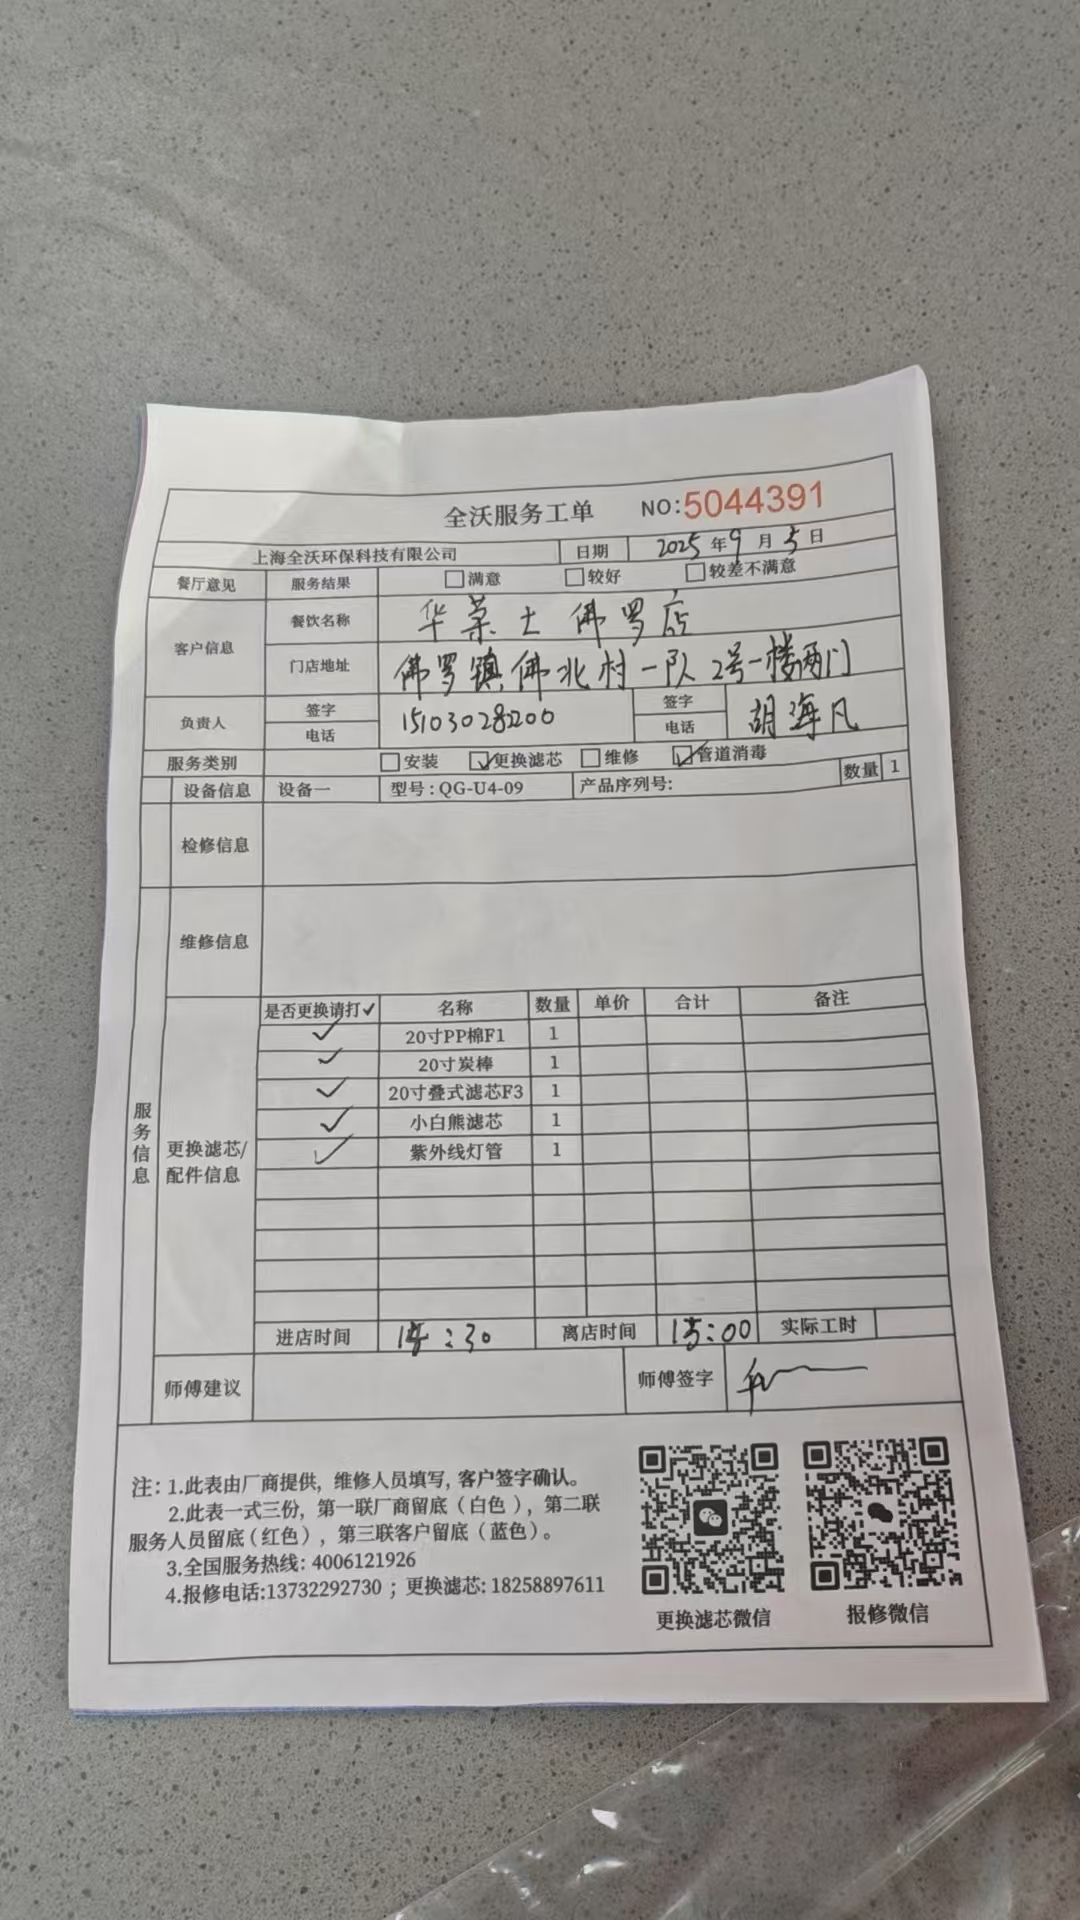 全沃服务工单 NO:5044391
上海全沃环保科技有限公司 日期 2025年9月5日
餐厅意见 服务结果 满意 较好 较差不满意
客户信息 餐饮名称 华莱士佛罗店
门店地址 佛罗镇佛北村一队2号一楼两门
负责人 签字 电话 15103028200 签字 电话 胡海凡
服务类别 安装 ✓更换滤芯 维修 ✓管道消毒
设备信息 设备一 型号:QG-U4-09 产品序列号: 数量 1
检修信息
维修信息
服务信息
更换滤芯/配件信息
是否更换请打✓ 名称 数量 单价 合计 备注
✓ 20寸PP棉F1 1
✓ 20寸炭棒 1
✓ 20寸叠式滤芯F3 1
✓ 小白熊滤芯 1
✓ 紫外线灯管 1
进店时间 14:30 离店时间 15:00 实际工时
师傅建议 师傅签字
注:1.此表由厂商提供,维修人员填写,客户签字确认。
2.此表一式三份,第一联厂商留底(白色),第二联
服务人员留底(红色),第三联客户留底(蓝色)。
3.全国服务热线:4006121926
4.报修电话:13732292730;更换滤芯:18258897611
更换滤芯微信 报修微信